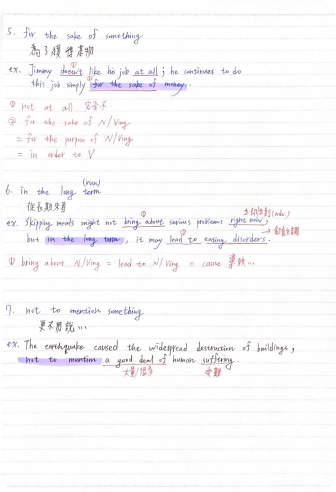 5. for the sake of something
為了獲得某物
ex. Jimmy doesn't like his job at all ; he continues to do
this job simply for the sake of money.
① not at all 完全不
② for the sake of N/Ving
= for the purpose of N/Ving
= in order to V
(run)
6. in the long term
從長期來看
立刻立刻(adv.)
ex. Skipping meals might not bring about serious problems right now,
but in the long term, it may lead to eating disorders. → 飲食失調
① bring about N/Ving = lead to N/Ving = cause 導致...
7. not to mention something
更不用說...
ex. The earthquake caused the widespread destruction of buildings,
not to mention a good deal of human suffering.
大量/很多 受難